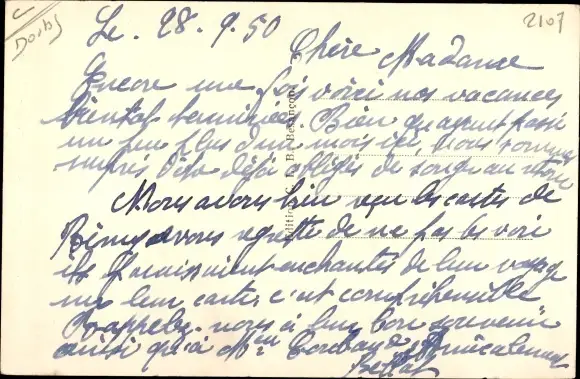 Doubs
2107
Le. 28. 9. 50
Chère Madame
Encore une fois voici nos vacances
bientôt terminées. Bien qu'ayant passé
un peu plus d'un mois ici, nous sommes
surpris d'être déjà obligés de songer au retour
Nous avons bien reçu les cartes de
Rémy avons regretté de ne pas les voir
ils paraissaient enchantés de leur voyage
sur leur carte, c'est compréhensible
Rappelez-nous à leur bon souvenir
ainsi qu'à Mr Amicalement
Edition C. L. B. Besançon